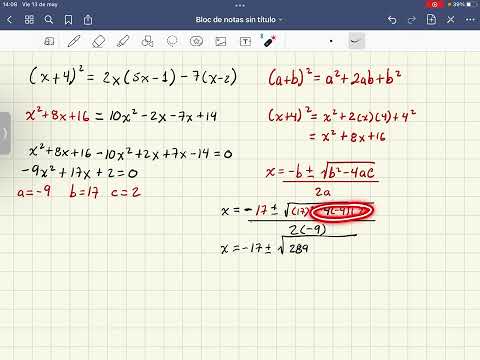 14:09 Vie 13 de may
39%
Bloc de notas sin título
(x+4)² = 2x(5x-1) - 7(x-2)
(a+b)² = a² + 2ab + b²
x² + 8x + 16 = 10x² - 2x - 7x + 14
(x+4)² = x² + 2(x)(4) + 4²
= x² + 8x + 16
x² + 8x + 16 - 10x² + 2x + 7x - 14 = 0
-9x² + 17x + 2 = 0
a = -9 b = 17 c = 2
x = -b ± √b² - 4ac
2a
x = -17 ± √(17)²
2(-9)
x = -17 ± √289